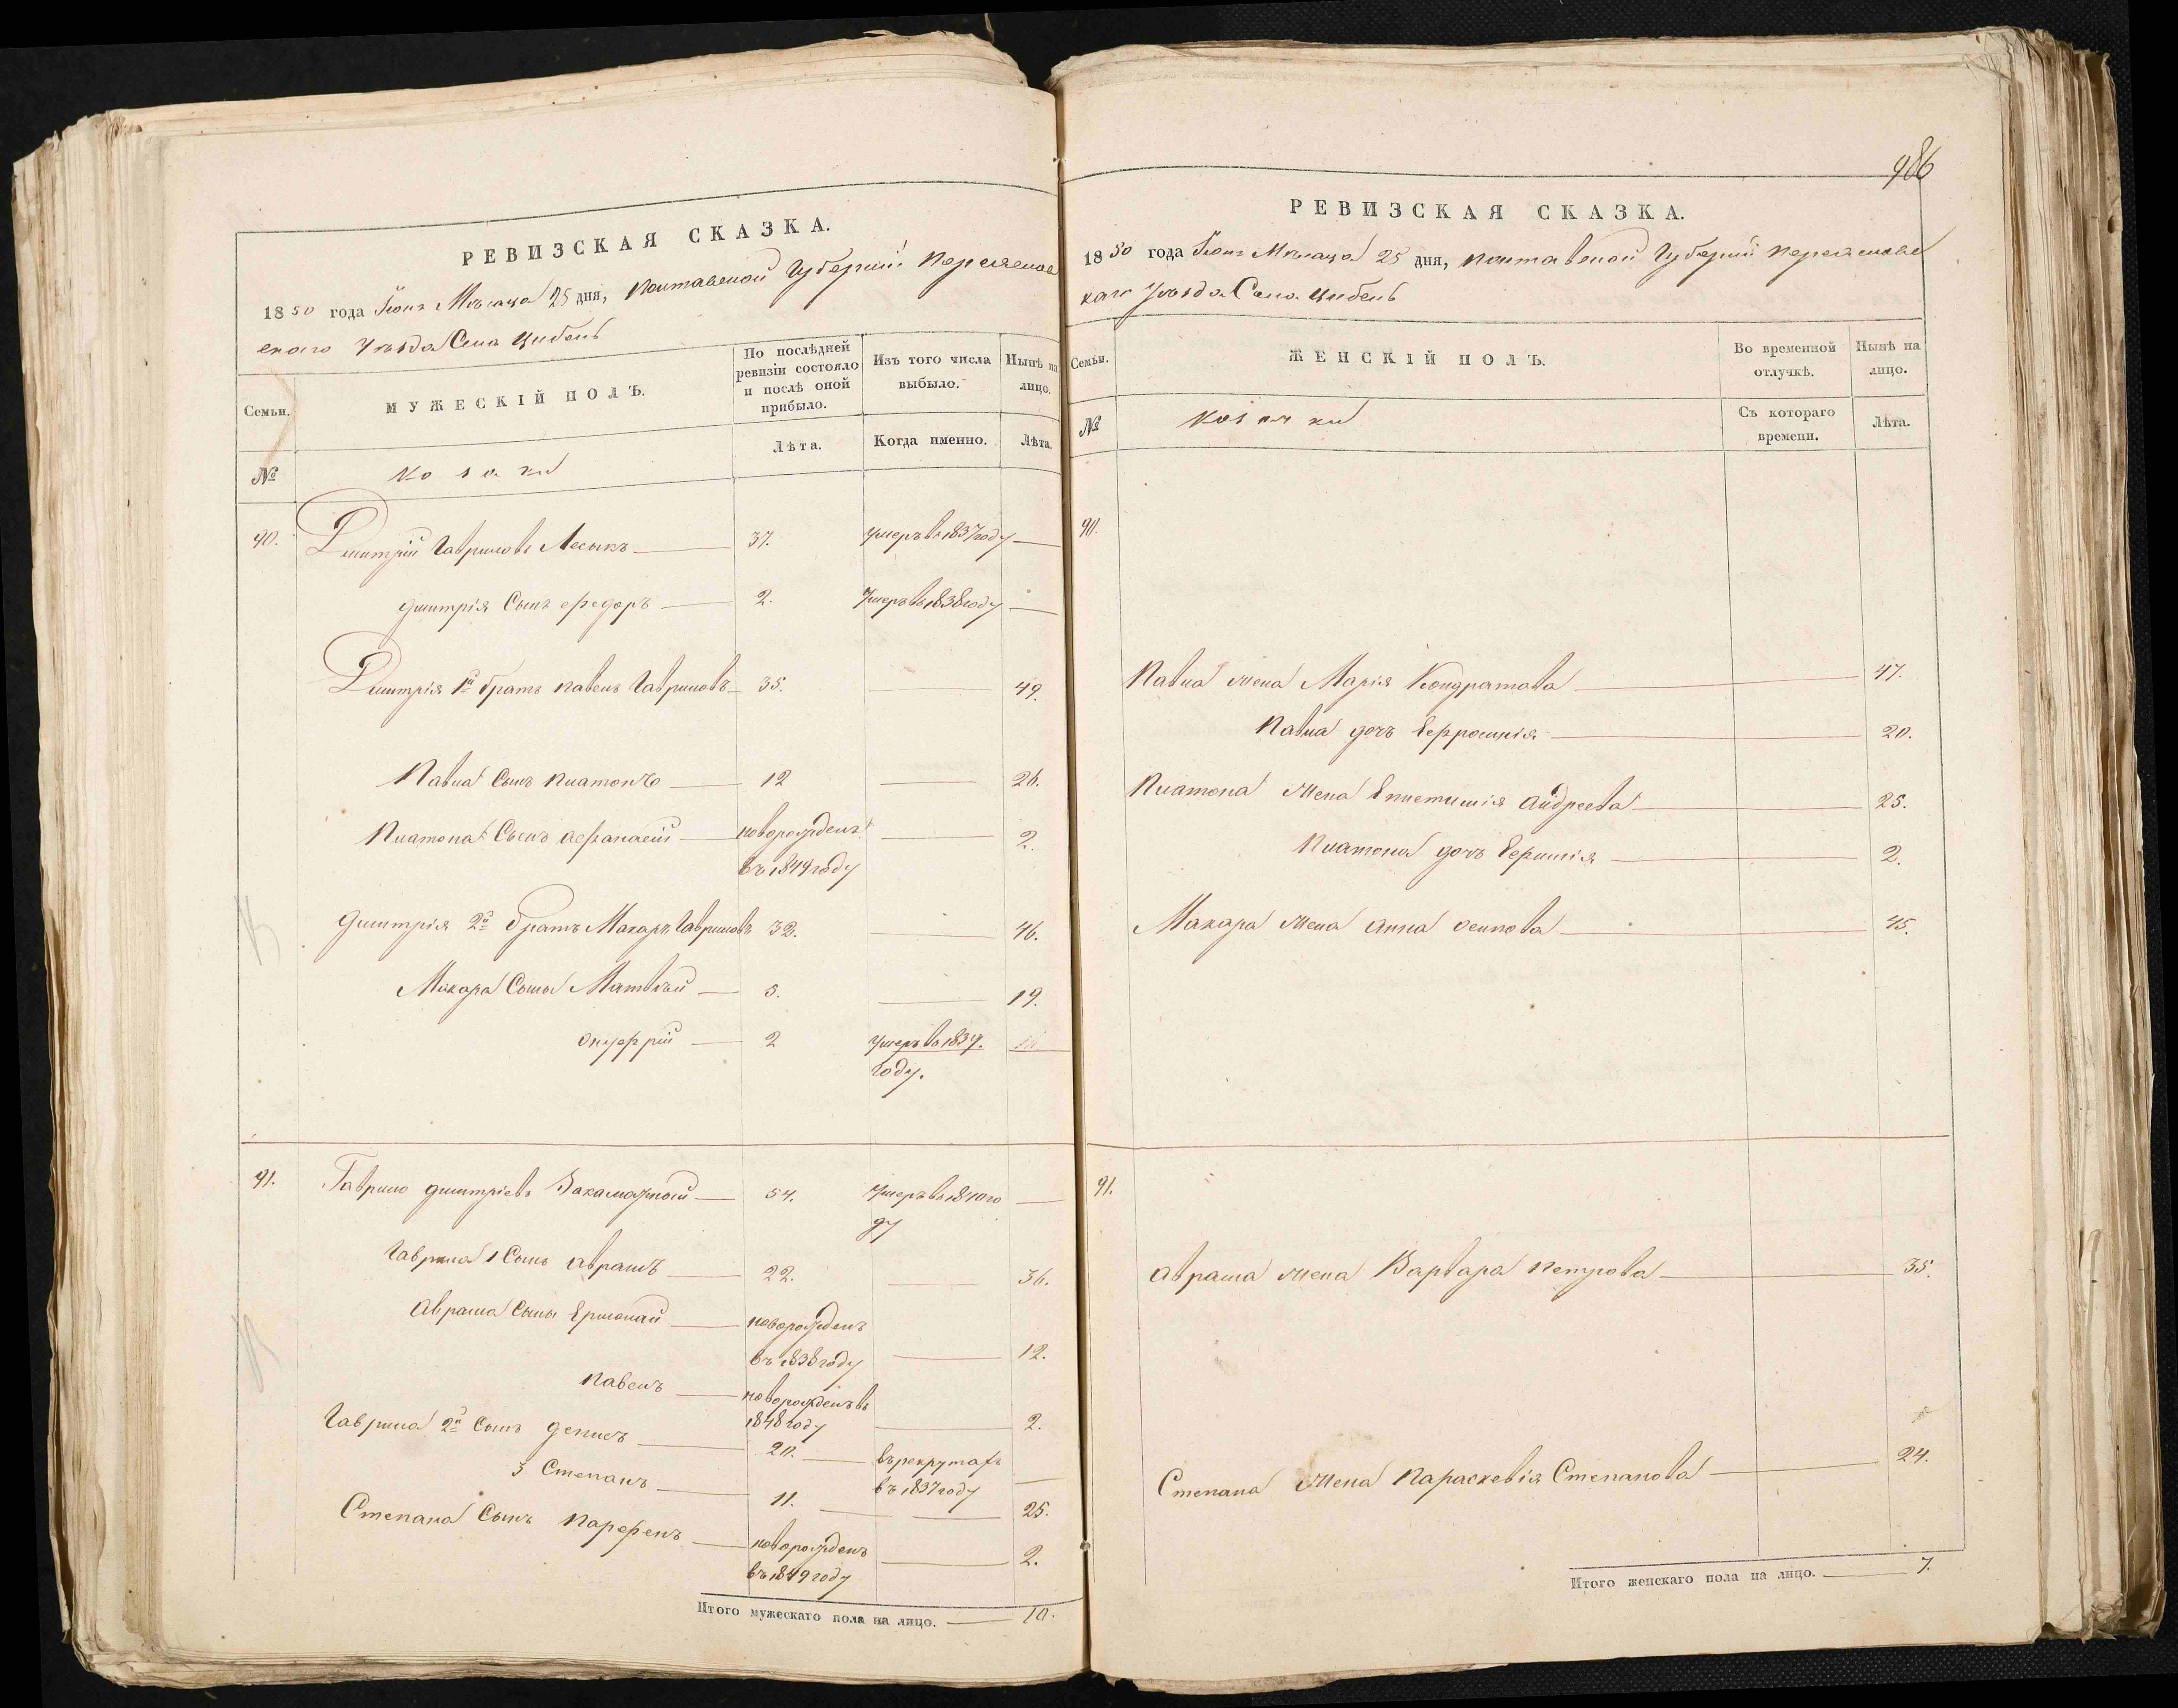 РЕВИЗСКАЯ СКАЗКА.
1850 года Іюня Мѣсяца 25 дня, Полтавской Губерніи Переяслов
скаго Уѣзда Села Цибель
Семьи.
МУЖЕСКІЙ ПОЛЪ.
По послѣдней ревизіи состояло и послѣ оной прибыло.
Изъ того числа выбыло.
Нынѣ на лицо.
№
Козаки
Лѣта.
Когда именно.
Лѣта.
90. Дмитрій Гавриловъ Лесыкъ 37. умеръ в 1837 году
Дмитрія Сынъ Федоръ 2. Умеръ в 1838 году
Дмитрія 1й братъ Павелъ Гавриловъ 35. 49.
Павла Сынъ Платонъ 12 26.
Платона Сынъ Афанасій новорожденъ 2.
въ 1849 году
Дмитрія 2й братъ Макаръ Гавриловъ 32. 46.
Макара Сыны Матвѣй 5. 19.
Онуфрій 2 Умеръ в 1839.
году.
91. Гаврило Дмитріевъ 54. Умеръ в 1840 го
ду
Гаврила 1 Сынъ Аврамъ 22. 36.
Аврама Сыны Ермолай новорожденъ
въ 1838 году 12.
Павелъ новорожденъ въ
1848 году 2.
Гаврила 2й Сынъ Денисъ 20. в рекрутах
въ 1837 году
3 Степанъ 11. 25.
Степана Сынъ Парфенъ новорожденъ 2.
въ 1849 году
Итого мужескаго пола на лицо. 10.
986
РЕВИЗСКАЯ СКАЗКА.
1850 года Іюня Мѣсяца 25 дня, Полтавской Губерніи Переяславс
каго Уѣзда Села Цибель
Семьи.
ЖЕНСКІЙ ПОЛЪ.
Во временной отлучкѣ.
Нынѣ на лицо.
№
Козачки
Съ котораго времени.
Лѣта.
90.
Павла жена Марія Кондратова 47.
Павла дочь Евфросинія 20.
Платона жена Епистимія Андреева 25.
Платона дочь 2.
Макара жена Анна Осипова 45.
91.
Аврама жена Варвара Петрова 35.
Степана жена Параскевія Степанова 24.
Итого женскаго пола на лицо. 7.